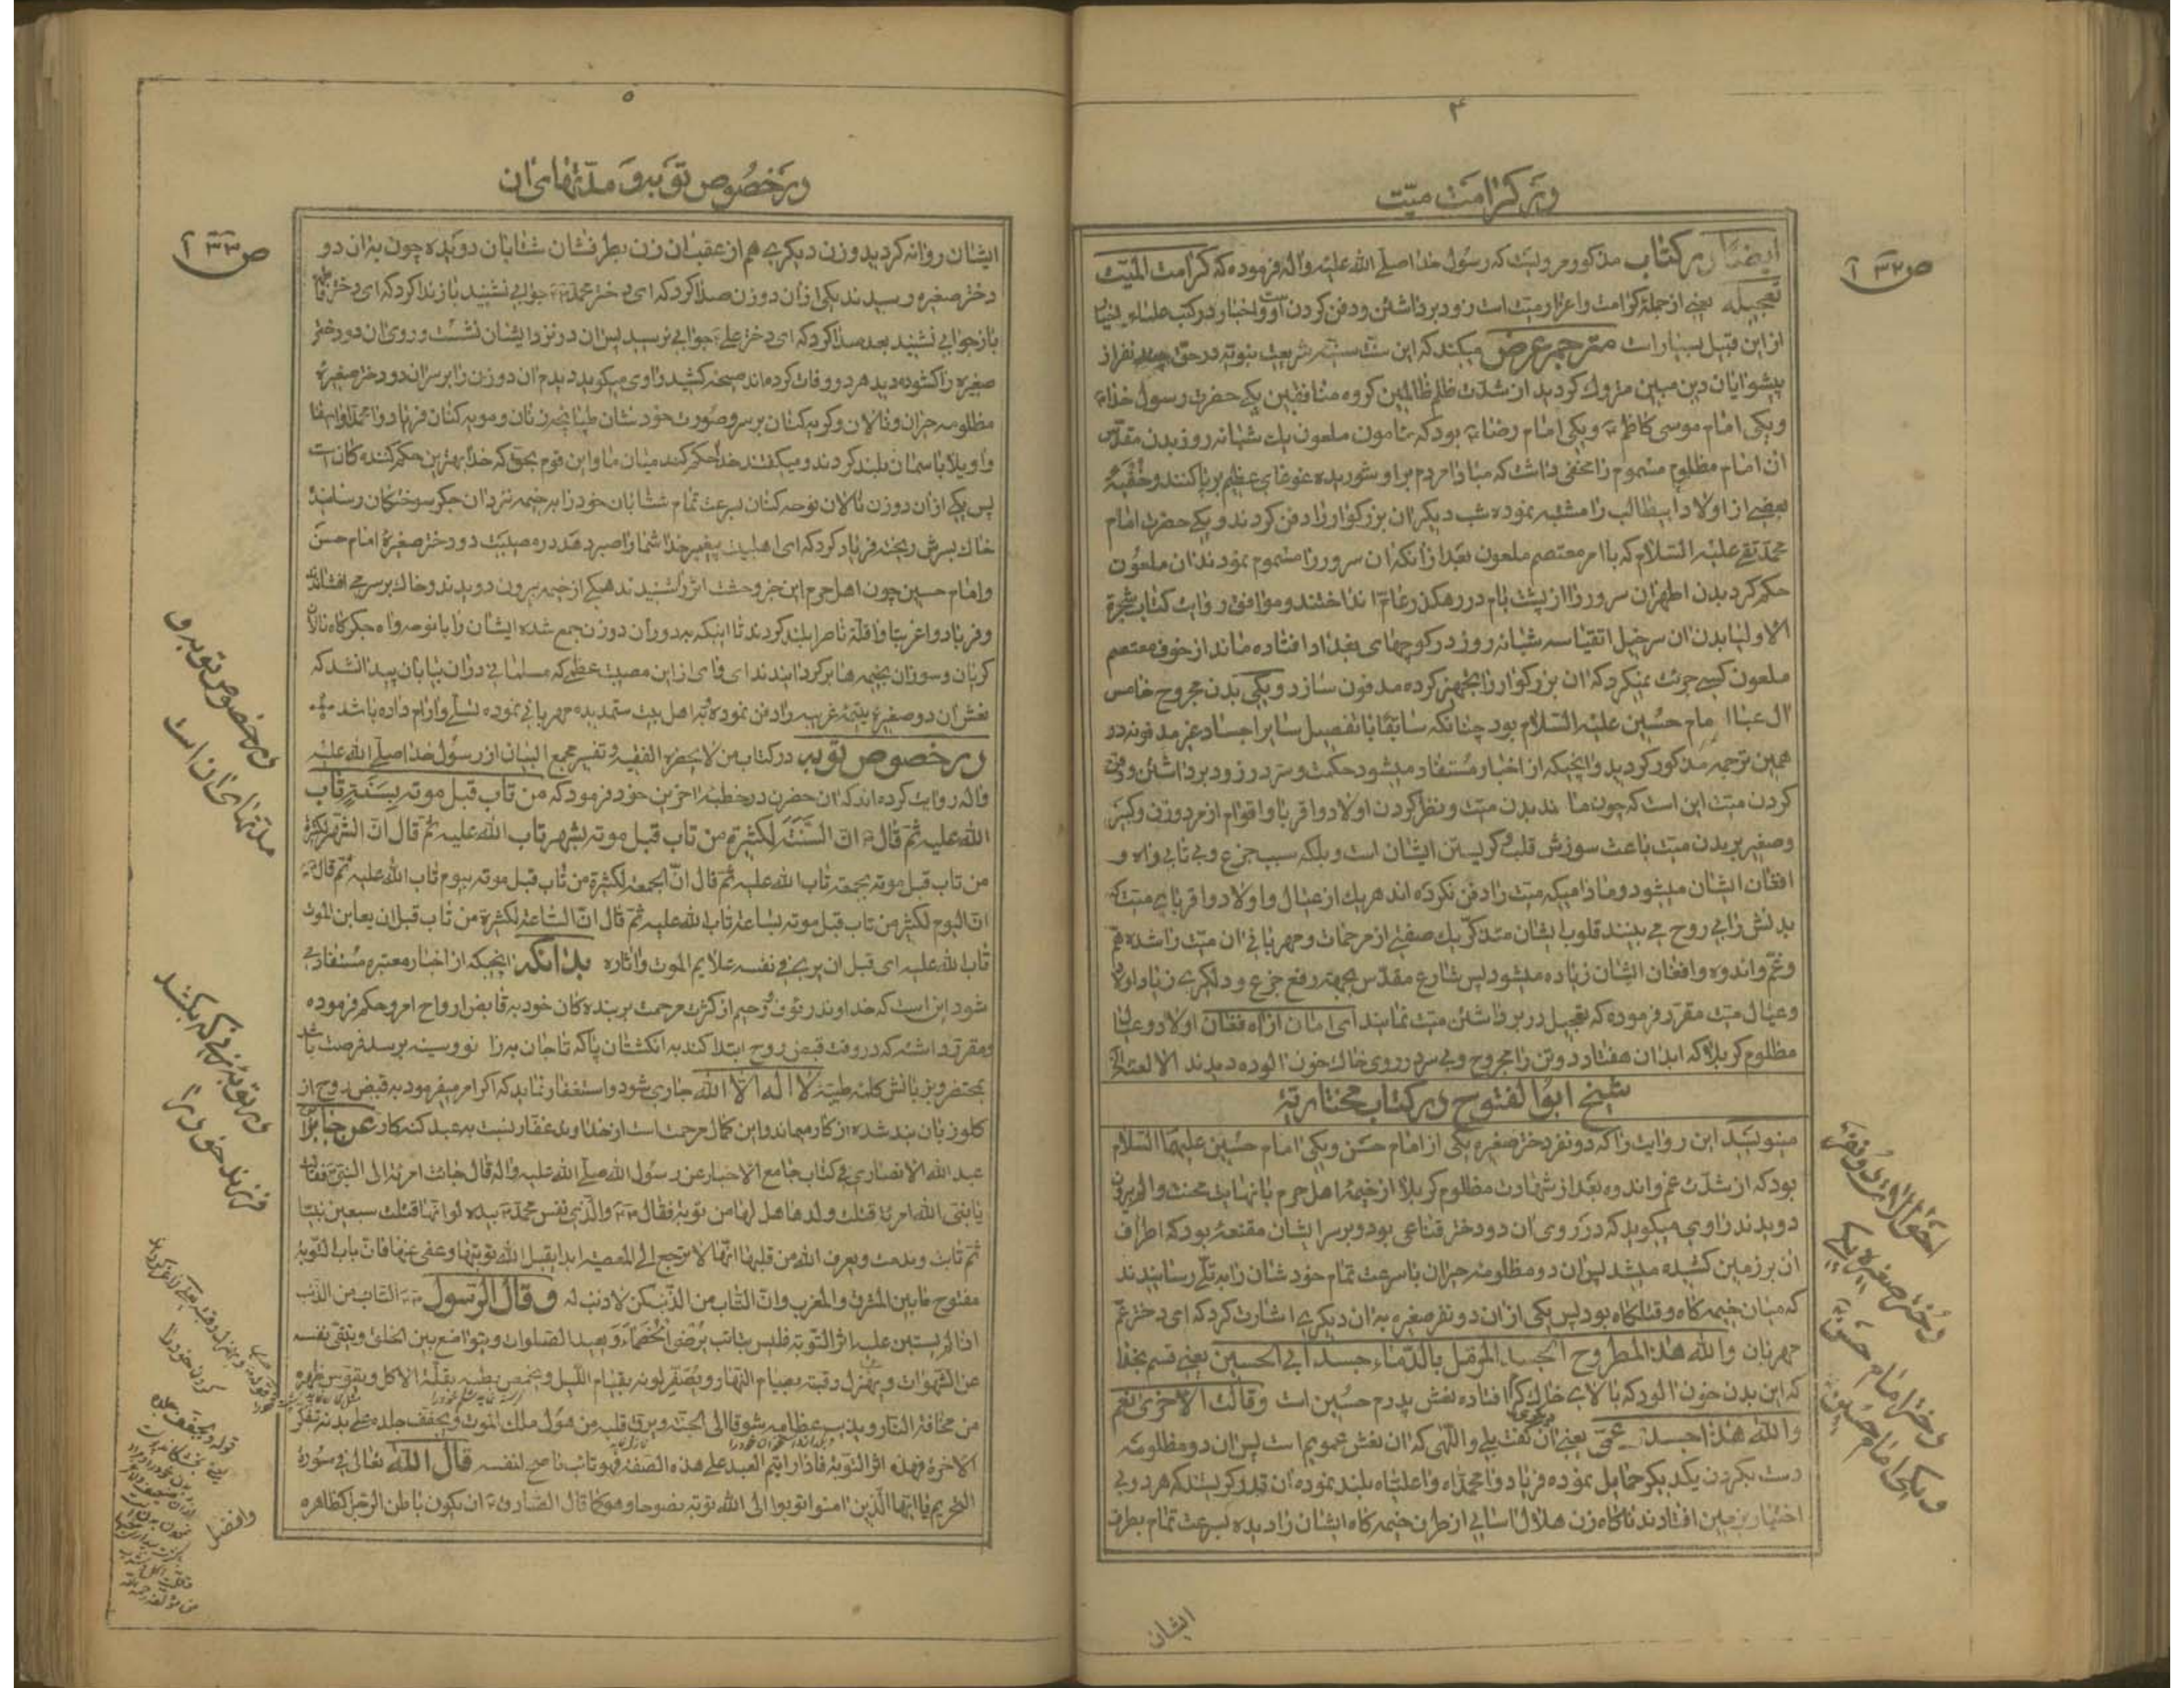 ۴
در کرامت میّت
ص ۳۲ آ
ایضًا در کتاب مذکور مرویست که رسول خدا صلّے الله علیه واله فرموده که کرامت المیّت
تعجیله یعنے از جملهٔ کرامت واعزاز میّت است زود برداشتن ودفن کردن او واخبار در کتب علماء
از این قبیل بسیار است مترجم عرض میکند که این سنّت سنیّه شریعت نبویّه در حقّ چند نفر از
پیشوایان دین مبین متروک کردید از شدّت ظلم ظالمین کروه منافقین یکے حضرت رسول خدا
ویکی امام موسی کاظم ویکی امام رضا بود که مامون ملعون یک شبانه روز بدن مقدّس
ان امام مظلوم مسموم را مخفی داشت که مبادا مردم بر او شوریده غوغای عظیم برپا کنند
بعضے از اولاد ابیطالب را مشتبه نموده شب دیکر ان بزرکوار را دفن کردند ویکے حضرت امام
محمّد تقے علیه السّلام که با امر معتصم ملعون بعد از انکه ان سرور را مسموم نمودند ان ملعون
حکم کرد بدن اطهر ان سرور را از پشت بام در رهکذر عام انداختند وموافق روایت کتاب شجرة
الاولیا بدن ان سرخیل اتقیا سه شبانه روز در کوچهای بغداد افتاده ماند از خوف معتصم
ملعون کسے جرئت نمیکرد که ان بزرکوار را تجهیز کرده مدفون سازد ویکی بدن مجروح خامس
ال عبا امام حسین علیه السّلام بود چنانکه سابقًا با تفصیل سایر اجساد غیر مدفونه در
همین ترجمه مذکور کردید وانچیکه از اخبار مستفاد میشود حکمت وسرّ در زود برداشتن ودفن
کردن میّت این است که چون ماندن میّت ونظر کردن اولاد واقربا واقوام از مرد وزن وکبیر
وصغیر بر بدن میّت باعث سوزش قلب وکریستن ایشان است وبلکه سبب جزع وبی تابی واه و
افغان ایشان میشود ومادامیکه میّت را دفن نکرده اند هر یک از عیال واولاد واقربای میّت که
بدنش را بی روح مے بینند قلوب ایشان متذکّر یک صفتے از مرحمات ومهربانی ان میّت را شده
وغم واندوه وافغان ایشان زیاده میشود پس شارع مقدّس بجهة رفع جزع ودلکیرے زیاد اولاد
وعیال میّت مقرّر فرموده که تعجیل در برداشتن میّت نمایند ای امان از اه فغان اولاد وعیال
مظلوم کربلا که ابدان هفتاد دو تن را مجروح وبی سر در روی خاک خون الوده دیدند
شیخ ابو الفتوح در کتاب مختاریّه
مینویسد این روایت را که دو نفر دختر صغیره یکی از امام حسن ویکی امام حسین علیهما السّلام
بود که از شدّت غم واندوه بعد از شهادت مظلوم کربلا از خیمهٔ اهل حرم با نهایت محنت
دویدند راوی میکوید که در روی ان دو دختر قناعی بود وبر سر ایشان مقنعهٔ بود که اطراف
ان بر زمین کشیده میشد پس ان دو مظلومه حیران با سرعت تمام خودشان را به تلّے رسانیدند
که میان خیمه کاه وقتلکاه بود پس یکی از ان دو نفر صغیره به ان دیکرے اشارت کرد که ای دختر عمّ
مهربان والله هذا المطروح الجسد المرمّل بالدّماء جسد ابی الحسین یعنی قسم بخدا
که این بدن خون الود که بالای خاک کرم افتاده نعش پدرم حسین است وقالت الاخری نعم
والله هذا جسد عمّی یعنی ان کفت بلے واللّهی که ان نعش عمویم است پس ان دو مظلومه
دست بکردن یکدیکر حمایل نموده فریاد وا محمّداه وا علیّاه بلند نموده ان قدر کریستند که هر دو بی
اختیار بزمین افتادند ناکاه زن هلال اسایی از طرف خیمه کاه ایشان را دیده بسرعت تمام بطرف
احوال
دختر صغیره یکے
دختر امام حسن
ویکی امام حسین
ایشان
۵
در خصوص توبه ومدّتهای ان
ص ۳۳ آ
ایشان روانه کردید وزن دیکرے هم از عقب ان زن بطرفشان شتابان دویده چون به ان دو
دختر صغیره رسیدند یکی از ان دو زن صدا کرد که ای دختر محمّد جوابی نشنید باز ندا کرد که ای دختر فاطمه
باز جوابی نشنید بعد صدا کرد که ای دختر علی جوابی نرسید پس ان در نزد ایشان نشست وروی ان دو دختر
صغیره را کشوده دید هر دو وفات کرده اند صیحه کشید راوی میکوید دیدم ان دو زن را بر سر ان دو دختر صغیرهٔ
مظلومه حیران ونالان وکریه کنان بر سر وصورت خودشان طپانچه زنان ومویه کنان فریاد
واویلا باسمان بلند کردند ومیکفتند خدا حکم کند میان ما واین قوم بحقّ که خدا بهترین حکم کننده کان است
پس یکی از ان دو زن نالان نوحه کنان بسرعت تمام شتابان خود را بر خیمه نزد ان جکر سوختکان رسانید
خاک بسرش ریخته فریاد کرد که ای اهلبیت پیغمبر خدا شما را صبر دهد در مصیبت دو دختر صغیرهٔ امام حسن
وامام حسین چون اهل حرم این خبر وحشت اثر را شنیدند همکے از خیمه بیرون دویدند وخاک بر سر مے افشاندند
وفریاد وا غربتا وا قلّة ناصرا بلند کردند تا اینکه به دور ان دو زن جمع شده ایشان را با نوحه واه جکر کاه نالان
کریان وسوزان بخیمه ها بر کردانیدند ای وای از این مصیبت عظمی که مسلمانی در ان بیابان پیدا نشد که
نعش ان دو صغیرهٔ یتیمهٔ غریب را دفن نموده به اهل بیت ستمدیده مهربانی نموده تسلّی وارام داده باشد
در خصوص توبه در کتاب من لا یحضره الفقیه وتفسیر مجمع البیان از رسول خدا صلّے الله علیه
واله روایت کرده اند که ان حضرت در خطبهٔ اخرین خود فرمود که من تاب قبل موته بسنة تاب
الله علیه ثمّ قال انّ السّنة لکثیرة من تاب قبل موته بشهر تاب الله علیه ثمّ قال انّ الشّهر لکثیر
من تاب قبل موته بجمعة تاب الله علیه ثمّ قال انّ الجمعة لکثیرة من تاب قبل موته بیوم تاب الله علیه ثمّ قال
انّ الیوم لکثیر من تاب قبل موته بساعة تاب الله علیه ثمّ قال انّ السّاعة لکثیرة من تاب قبل ان یعاین الموت
تاب الله علیه ای قبل ان یری فی نفسه علایم الموت واثاره بدانکه انچیکه از اخبار معتبره مستفاد مے
شود این است که خداوند رئوف ورحیم از کثرت مرحمت بر بنده کان خود به قابض ارواح امر وحکم فرموده
ومقرّر داشته که در وقت قبض روح ابتدا کند به انکشتان پا که تا جان به زانو وسینه برسد فرصت باشد
بمحتضر وبزبانش کلمهٔ طیّبهٔ لا اله الّا الله جاری شود واستغفار نماید که اکر امر میفرمود به قبض روح از
کلو زبان بند شده از کار میماند واین کمال مرحمت است از خداوند غفّار نسبت به عبد کنه کار عن جابر
عبد الله الانصاری فی کتاب جامع الاخبار عن رسول الله صلّے الله علیه واله قال جائت امرئة الی النّبی فقالت
یا نبیّ الله امرئة قتلت ولدها هل لها من توبة فقال والّذی نفس محمّد بیده لو انّها قتلت سبعین نبیّا
ثمّ تابت وندمت ویعرف الله من قلبها انّها لا ترجع الی المعصیة ابدا یقبل الله توبتها وعفی عنها فانّ باب التّوبة
مفتوح ما بین المشرق والمغرب وانّ التّائب من الذّنب کمن لا ذنب له وقال الرّسول التّائب من الذّنب
اذا لم یستبن علیه اثر التّوبة فلیس بتائب یرضی الخصماء ویعید الصّلوات ویتواضع بین الخلق ویتّقی نفسه
عن الشّهوات ویهزل رقبته بصیام النّهار ویصفّر لونه بقیام اللّیل ویخمص بطنه بقلّة الاکل ویقوّس ظهره
من مخافة النّار ویذیب عظامه شوقا الی الجنّة ویرقّ قلبه من هول ملک الموت ویجفّف جلده علی بدنه بتفکّر
الاخرة فهذه اثر التّوبة فاذا رایتم العبد علی هذه الصّفة فهو تائب ناصح لنفسه قال الله تعالی فی سورة
التّحریم یا ایّها الّذین امنوا توبوا الی الله توبة نصوحا وهو کما قال الصّادق ان یکون باطن الرّجل کظاهره
در خصوص توبه و
مدّتهای ان است
در توبهٔ زنے که بکشد
فرزند خود را
وافضل